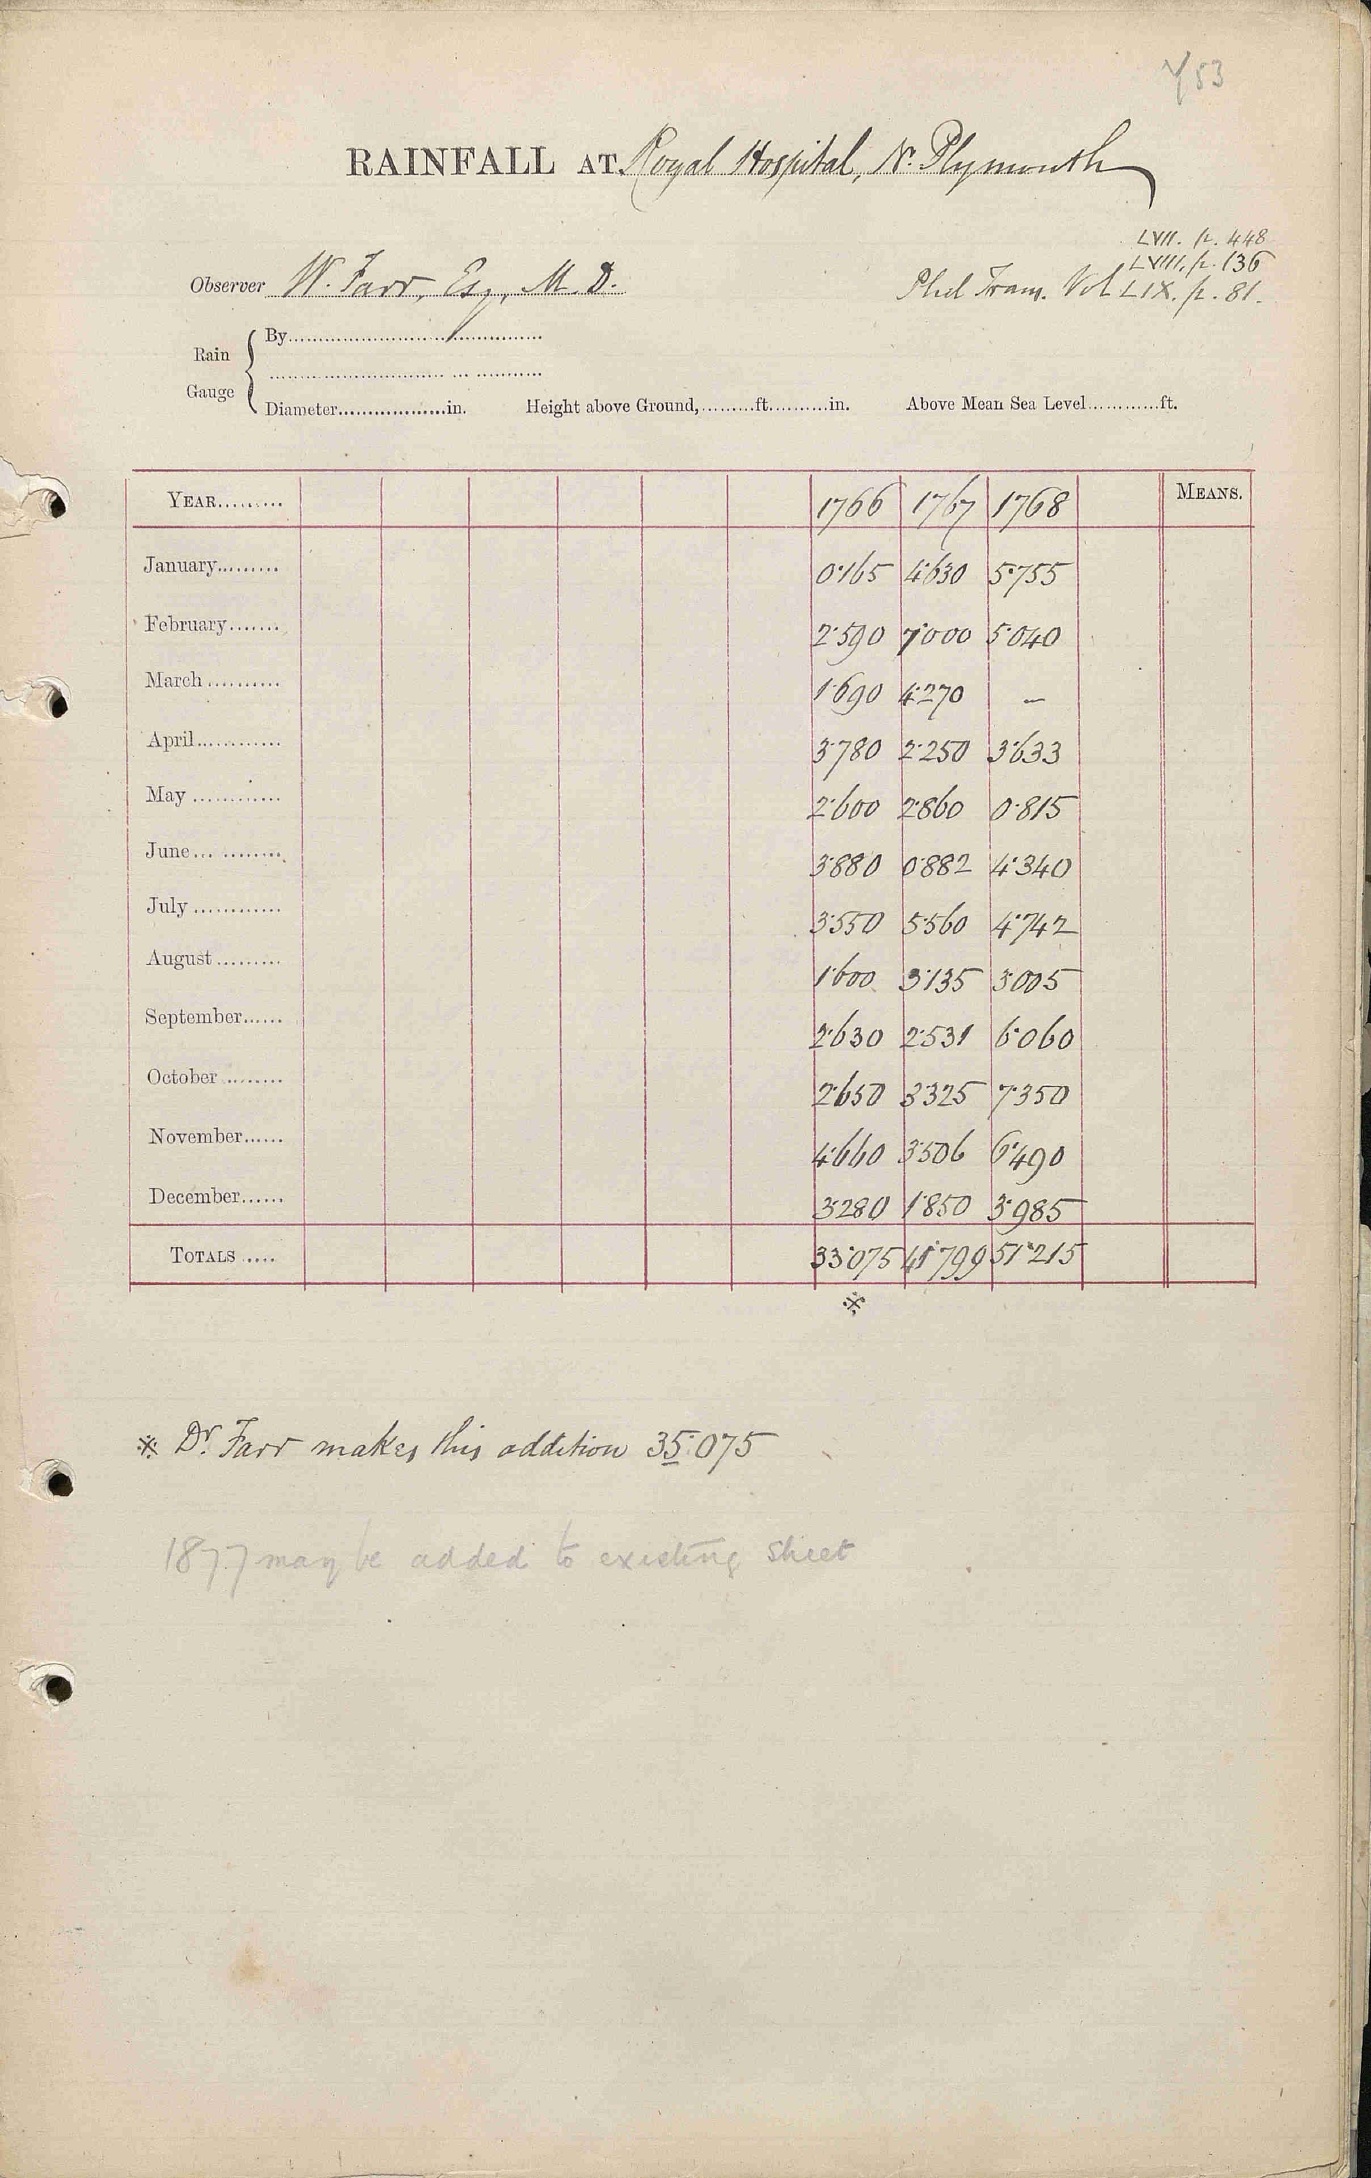 453
RAINFALL AT Royal Hospital, Nr. Plymouth
LVII. p. 448
LVIII. p. 136
Observer W. Farr, Esq., M.D. Phil Trans. Vol LIX. p. 81.
Rain Gauge
By
Diameter in. Height above Ground, ft. in. Above Mean Sea Level ft.
YEAR 1766 1767 1768 MEANS.
January 0·165 4·630 5·755
February 2·590 7·000 5·040
March 1·690 4·270 –
April 3·780 2·250 3·633
May 2·600 2·860 0·815
June 3·880 0·882 4·340
July 3·550 5·560 4·742
August 1·600 3·135 3·005
September 2·630 2·531 6·060
October 2·650 3·325 7·350
November 4·660 3·506 6·490
December 3·280 1·850 3·985
TOTALS 33·075 41·799 51·215
※
※ Dr. Farr makes this addition 35·075
1877 may be added to existing sheet